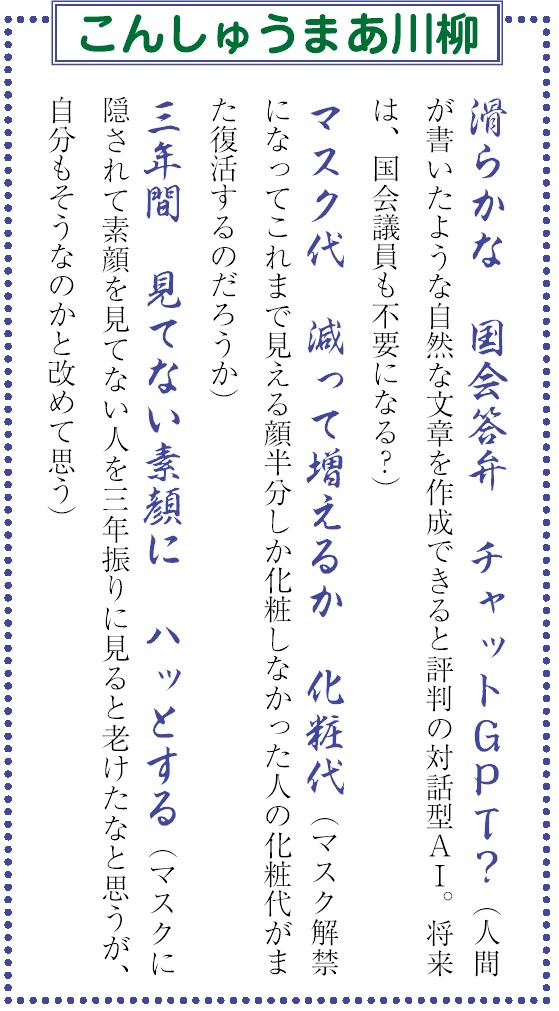 こんしゅうまあ川柳
滑らかな　国会答弁　チャットＧＰＴ？（人間
が書いたような自然な文章を作成できると評判の対話型ＡＩ。将来
は、国会議員も不要になる？）
マスク代　減って増えるか　化粧代（マスク解禁
になってこれまで見える顔半分しか化粧しなかった人の化粧代がま
た復活するのだろうか）
三年間　見てない素顔に　ハッとする（マスクに
隠されて素顔を見てない人を三年振りに見ると老けたなと思うが、
自分もそうなのかと改めて思う）